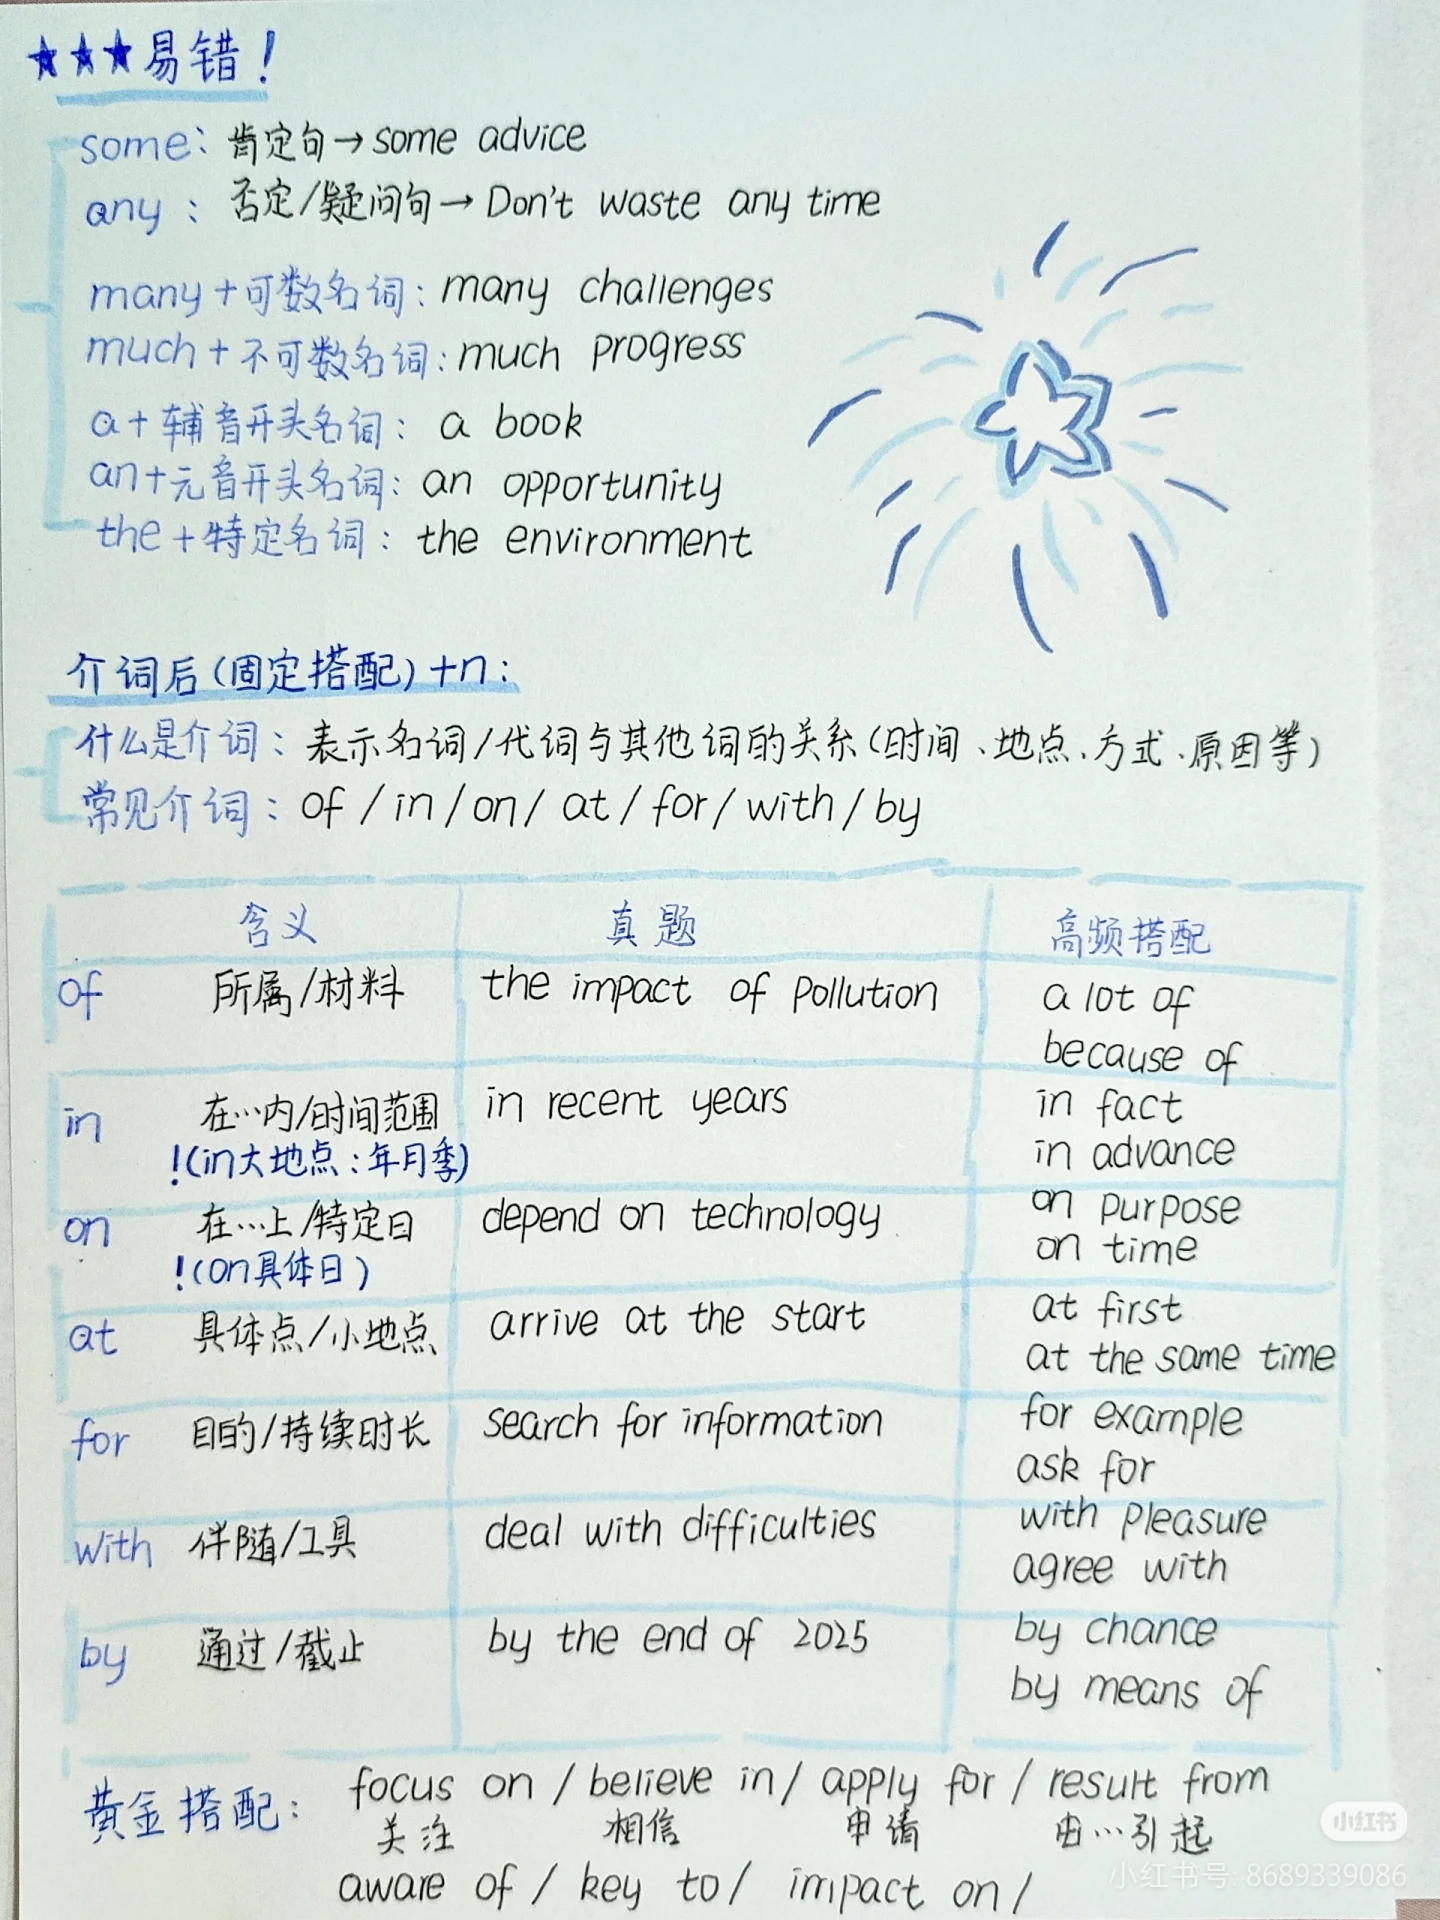 ★★★易错！
some：肯定句→some advice
any：否定/疑问句→Don't waste any time
many+可数名词：many challenges
much+不可数名词：much progress
a+辅音开头名词：a book
an+元音开头名词：an opportunity
the+特定名词：the environment
介词后(固定搭配)+n：
什么是介词：表示名词/代词与其他词的关系(时间、地点、方式、原因等)
常见介词：of/in/on/at/for/with/by
含义 真题 高频搭配
of 所属/材料 the impact of pollution a lot of
because of
in 在…内/时间范围 in recent years in fact
!(in大地点：年月季) in advance
on 在…上/特定日 depend on technology on purpose
!(on具体日) on time
at 具体点/小地点 arrive at the start at first
at the same time
for 目的/持续时长 search for information for example
ask for
with 伴随/工具 deal with difficulties with pleasure
agree with
by 通过/截止 by the end of 2025 by chance
by means of
黄金搭配：focus on/believe in/apply for/result from
关注 相信 申请 由…引起
aware of/key to/impact on/
小红书
小红书号: 8689339086